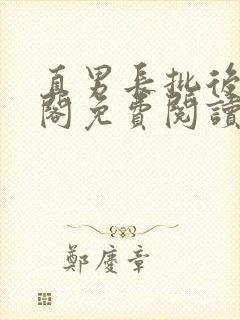 直男長批後
閣免費閱讀
鄭慶章